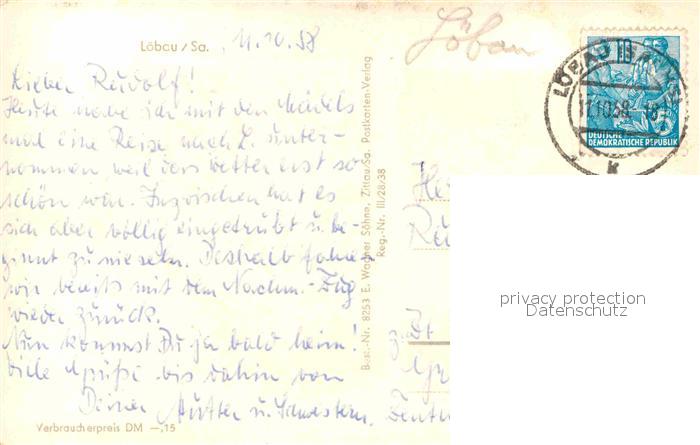 Löbau / Sa. 11.10.58
Lieber Rudolf!
Heute habe ich mit den Mädels
mal eine Reise nach L. unter-
nommen weil das Wetter erst so
schön war. Inzwischen hat es
sich aber völlig eingetrübt u. be-
ginnt zu nieseln. Deshalb fahren
wir bereits mit dem Nachm.-Zug
wieder zurück.
Nun kommst Du ja bald heim!
Viele Grüße bis dahin von
Deiner Mutter u. Schwestern.
Verbraucherpreis DM —,15
Best.-Nr. 8253 E. Wagner Söhne, Zittau/Sa. Postkarten-Verlag
Reg.-Nr. III/28/38
Löbau
LÖBAU
10.58
DEUTSCHE
DEMOKRATISCHE REPUBLIK
5
k
privacy protection
Datenschutz